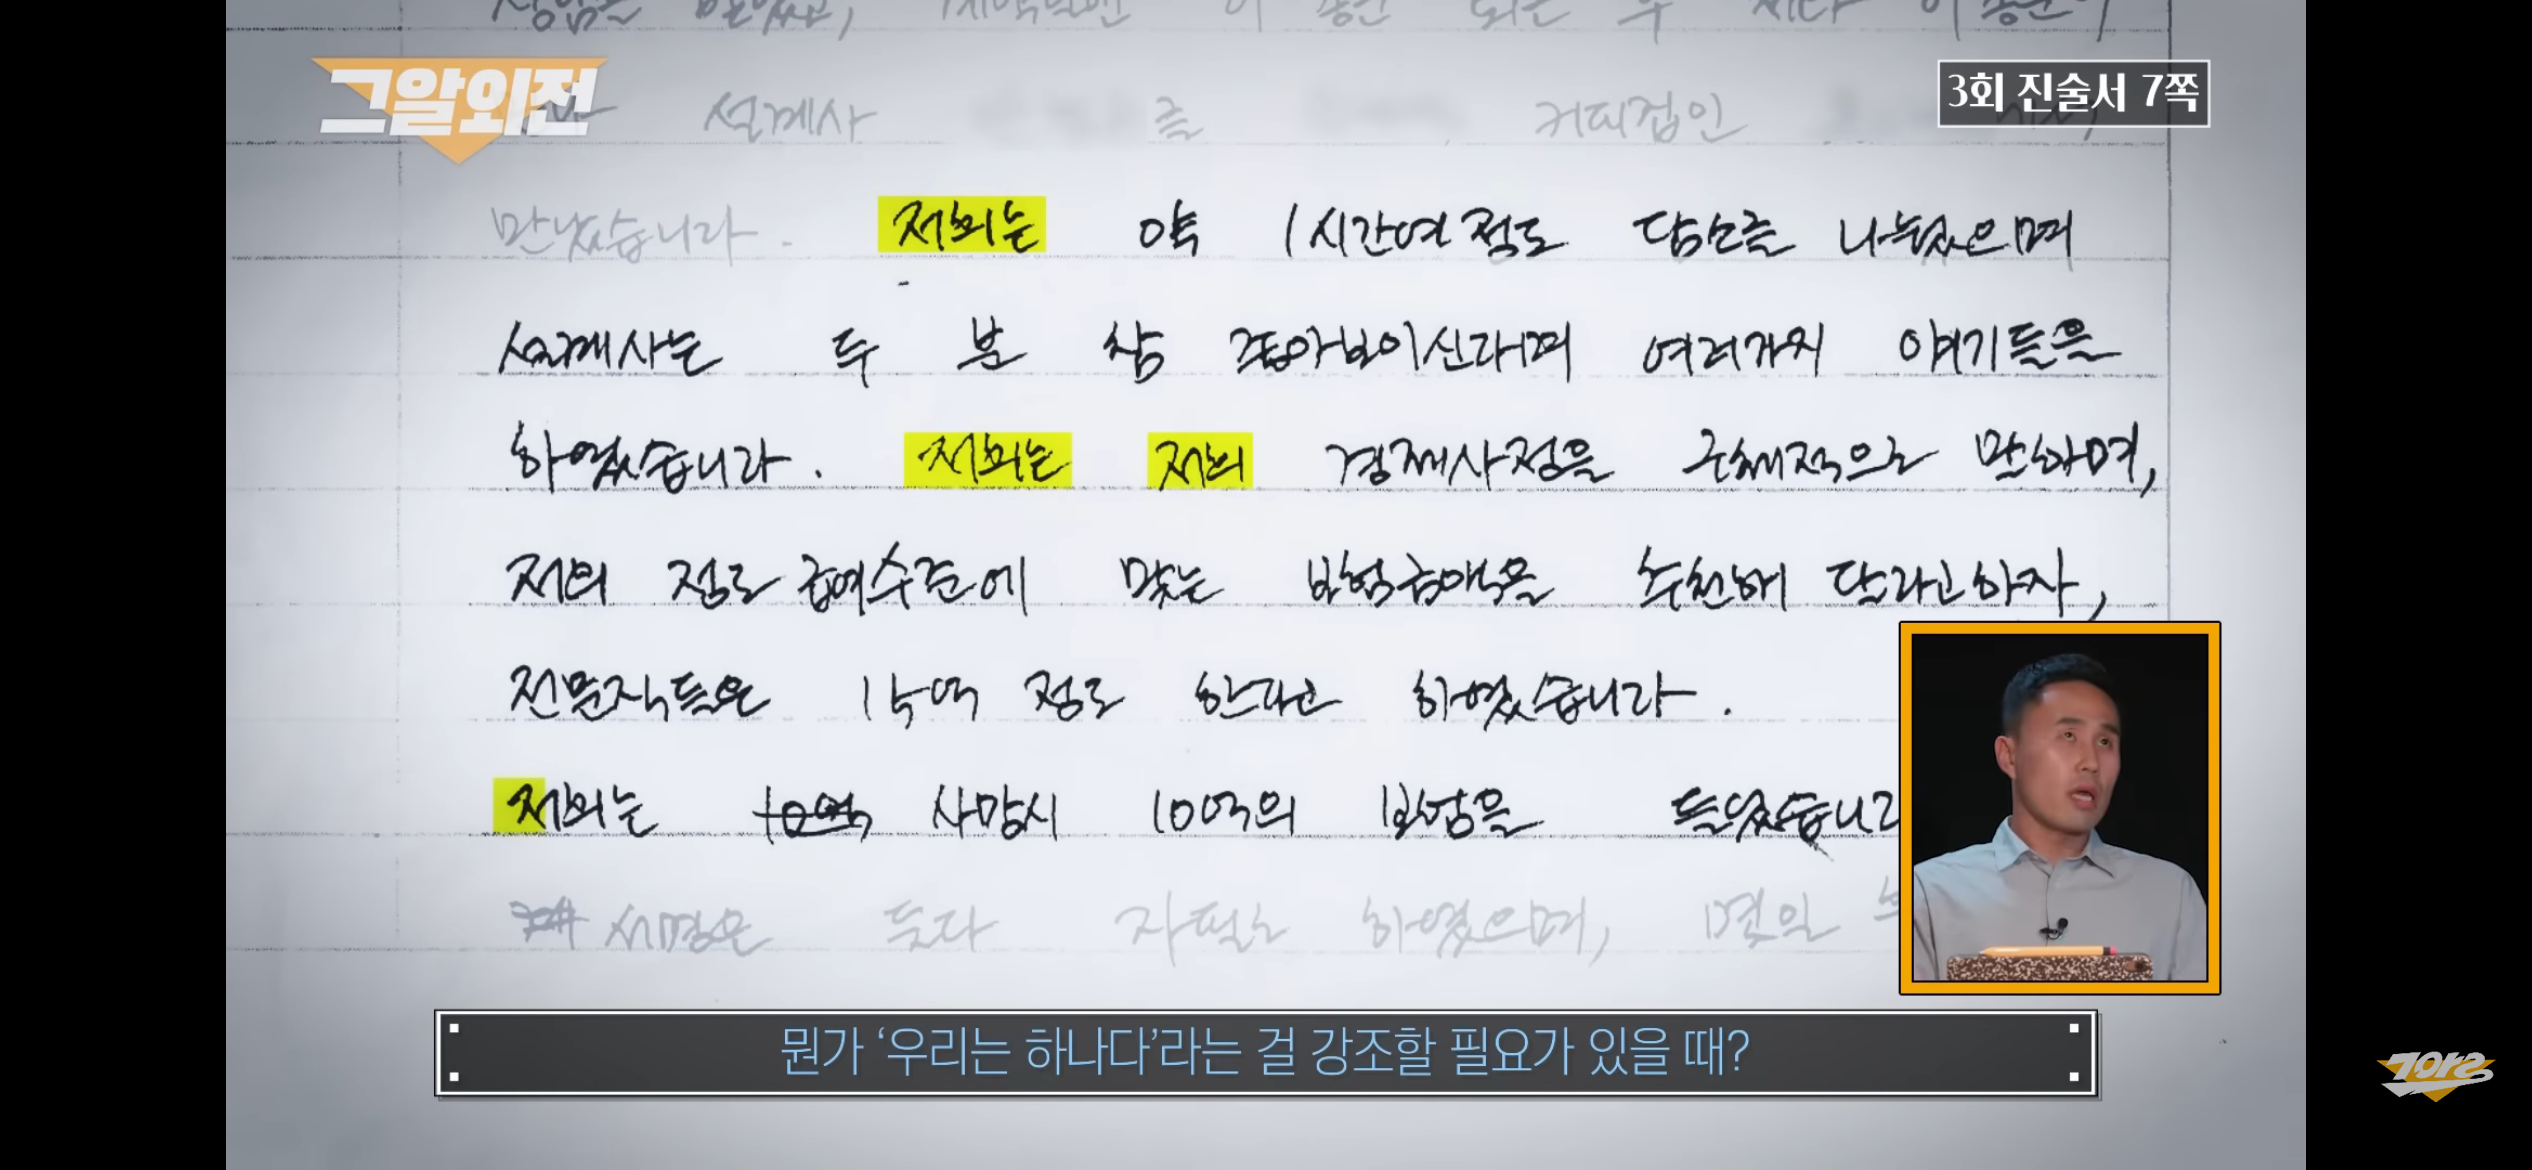 그알외전
3회 진술서 7쪽
설계사 를 커피점인
만났습니다. 저희는 약 1시간여 정도 담소를 나누었으며
설계사는 두 분 참 좋아보이신다며 여러가지 얘기들을
하였습니다. 저희는 저희 경제사정을 구체적으로 말하며,
저희 정도 급여수준에 맞는 보험금액을 추천해 달라고 하자,
전문직들은 15억 정도 한다고 하였습니다.
저희는 10억 사망시 10억의 보험을 들었습니다
서명은 둘다 자필로 하였으며, 몇일
뭔가 '우리는 하나다'라는 걸 강조할 필요가 있을 때?
그알